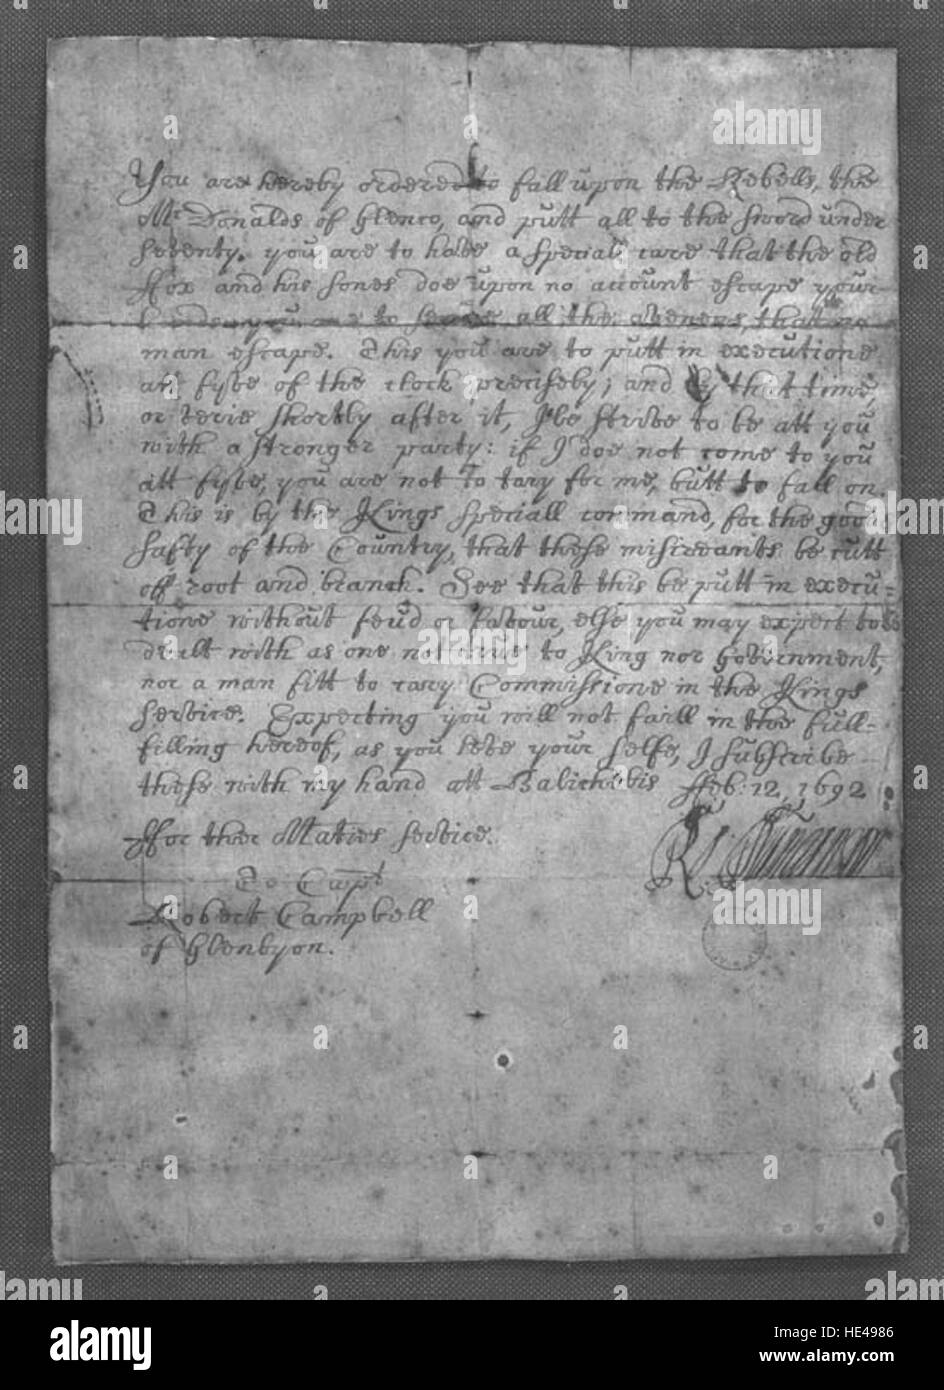 You are hereby ordered to fall upon the Rebells, the
McDonalds of Glenco, and putt all to the sword under
seventy. you are to have a speciall care that the old
ffox and his sones doe upon no account escape your
you are to secure all the avenues that no
man escape. This you are to putt in executione
att fyve of the clock precisely; and by that time,
or verie shortly after it, I'le strive to be att you
with a stronger party: if I doe not come to you
att fyve, you are not to tary for me, butt to fall on.
This is by the Kings speciall command, for the good &
safty of the Country, that these miscreants be cutt
off root and branch. See that this be putt in execu-
tione without feud or favour, else you may expect to be
dealt with as one not true to King nor government,
nor a man fitt to cary Commissione in the Kings
service. Expecting you will not faill in the full-
filling hereof, as you love your selfe, I subscribe
these with my hand att Balicholis ffeb: 12, 1692
ffor ther Maties service.
R Duncanson
To Capt
Robert Campbell
of Glenlyon.
alamy
alamy
alamy
alamy
alamy
alamy
alamy
Image ID: HE4986
www.alamy.com